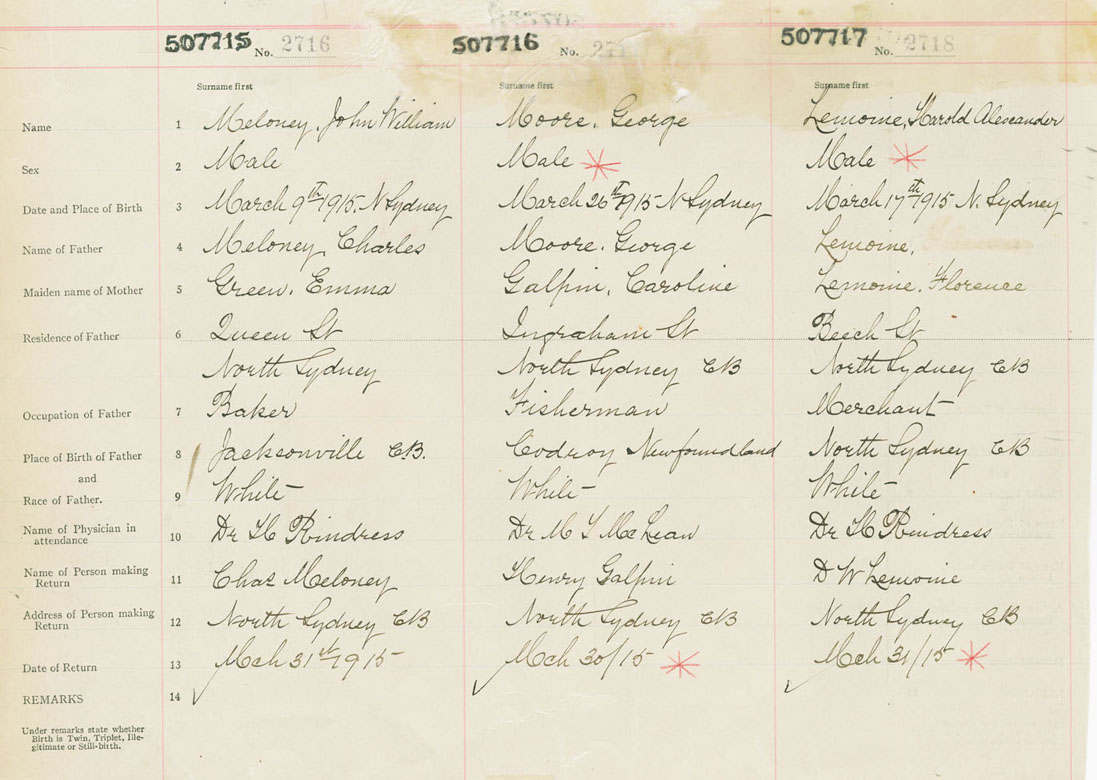 507715 No. 2716 507716 No. 507717 No. 2718
Surname first Surname first Surname first
Name 1 Meloney, John William Moore, George Lemoine, Harold Alexander
Sex 2 Male Male Male
Date and Place of Birth 3 March 9th 1915, N Sydney March 26th 1915 N Sydney March 17th 1915 N. Sydney
Name of Father 4 Meloney, Charles Moore, George Lemoine,
Maiden name of Mother 5 Green, Emma Galpin, Caroline Lemoine, Florence
Residence of Father 6 Queen St Ingraham St Beech St
North Sydney North Sydney CB North Sydney CB
Occupation of Father 7 Baker Fisherman Merchant
Place of Birth of Father 8 Jacksonville C.B. Codroy Newfoundland North Sydney CB
and
Race of Father. 9 White White White
Name of Physician in
attendance 10 Dr H Rindress Dr M T McLean Dr H Rindress
Name of Person making
Return 11 Chas Meloney Henry Galpin D W Lemoine
Address of Person making
Return 12 North Sydney CB North Sydney CB North Sydney CB
Date of Return 13 Mch 31st 1915 Mch 30/15 Mch 31/15
REMARKS 14
Under remarks state whether
Birth is Twin, Triplet, Ille-
gitimate or Still-birth.